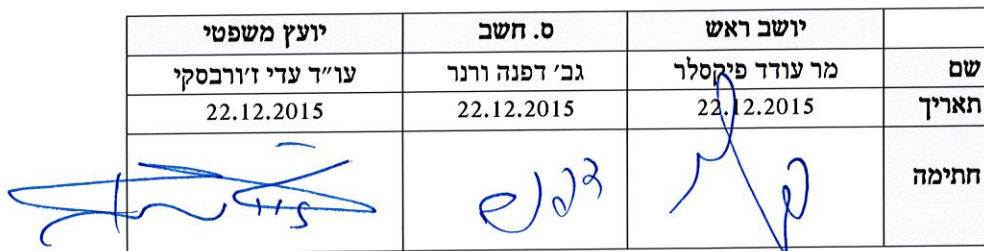 יושב ראש ס. חשב יועץ משפטי
שם מר עודד פיקסלר גב׳ דפנה ורנר עו״ד עדי ז׳ורבסקי
תאריך 22.12.2015 22.12.2015 22.12.2015
חתימה